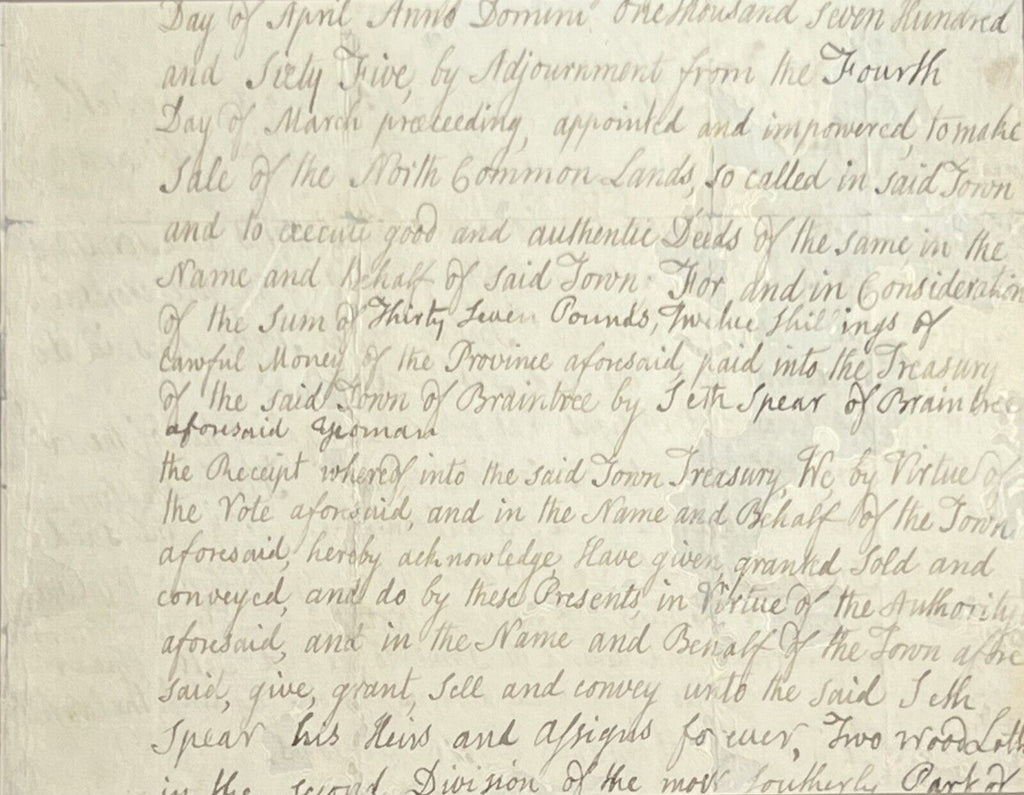 Day of April Anno Domini One thousand Seven Hundred
and Sixty Five, by Adjournment from the Fourth
Day of March preceeding, appointed and impowered, to make
Sale of the North Common Lands, so called in said Town
and to execute good and authentic Deeds of the same in the
Name and Behalf of said Town: For and in Consideration
of the Sum of Thirty Seven Pounds, Twelve Shillings of
Lawful Money of the Province aforesaid, paid into the Treasury
of the said Town of Braintree by Seth Spear of Braintree
aforesaid Yeoman
the Receipt whereof into the said Town Treasury, We, by Virtue of
the Vote aforesaid, and in the Name and Behalf of the Town
aforesaid, hereby acknowledge Have given, granted Sold and
conveyed, and do by these Presents, in Virtue of the Authority
aforesaid, and in the Name and Behalf of the Town afore
said, give, grant, Sell and convey unto the said Seth
Spear his Heirs and Assigns forever, Two Wood Lotts
in the second Division of the most Southerly Part of